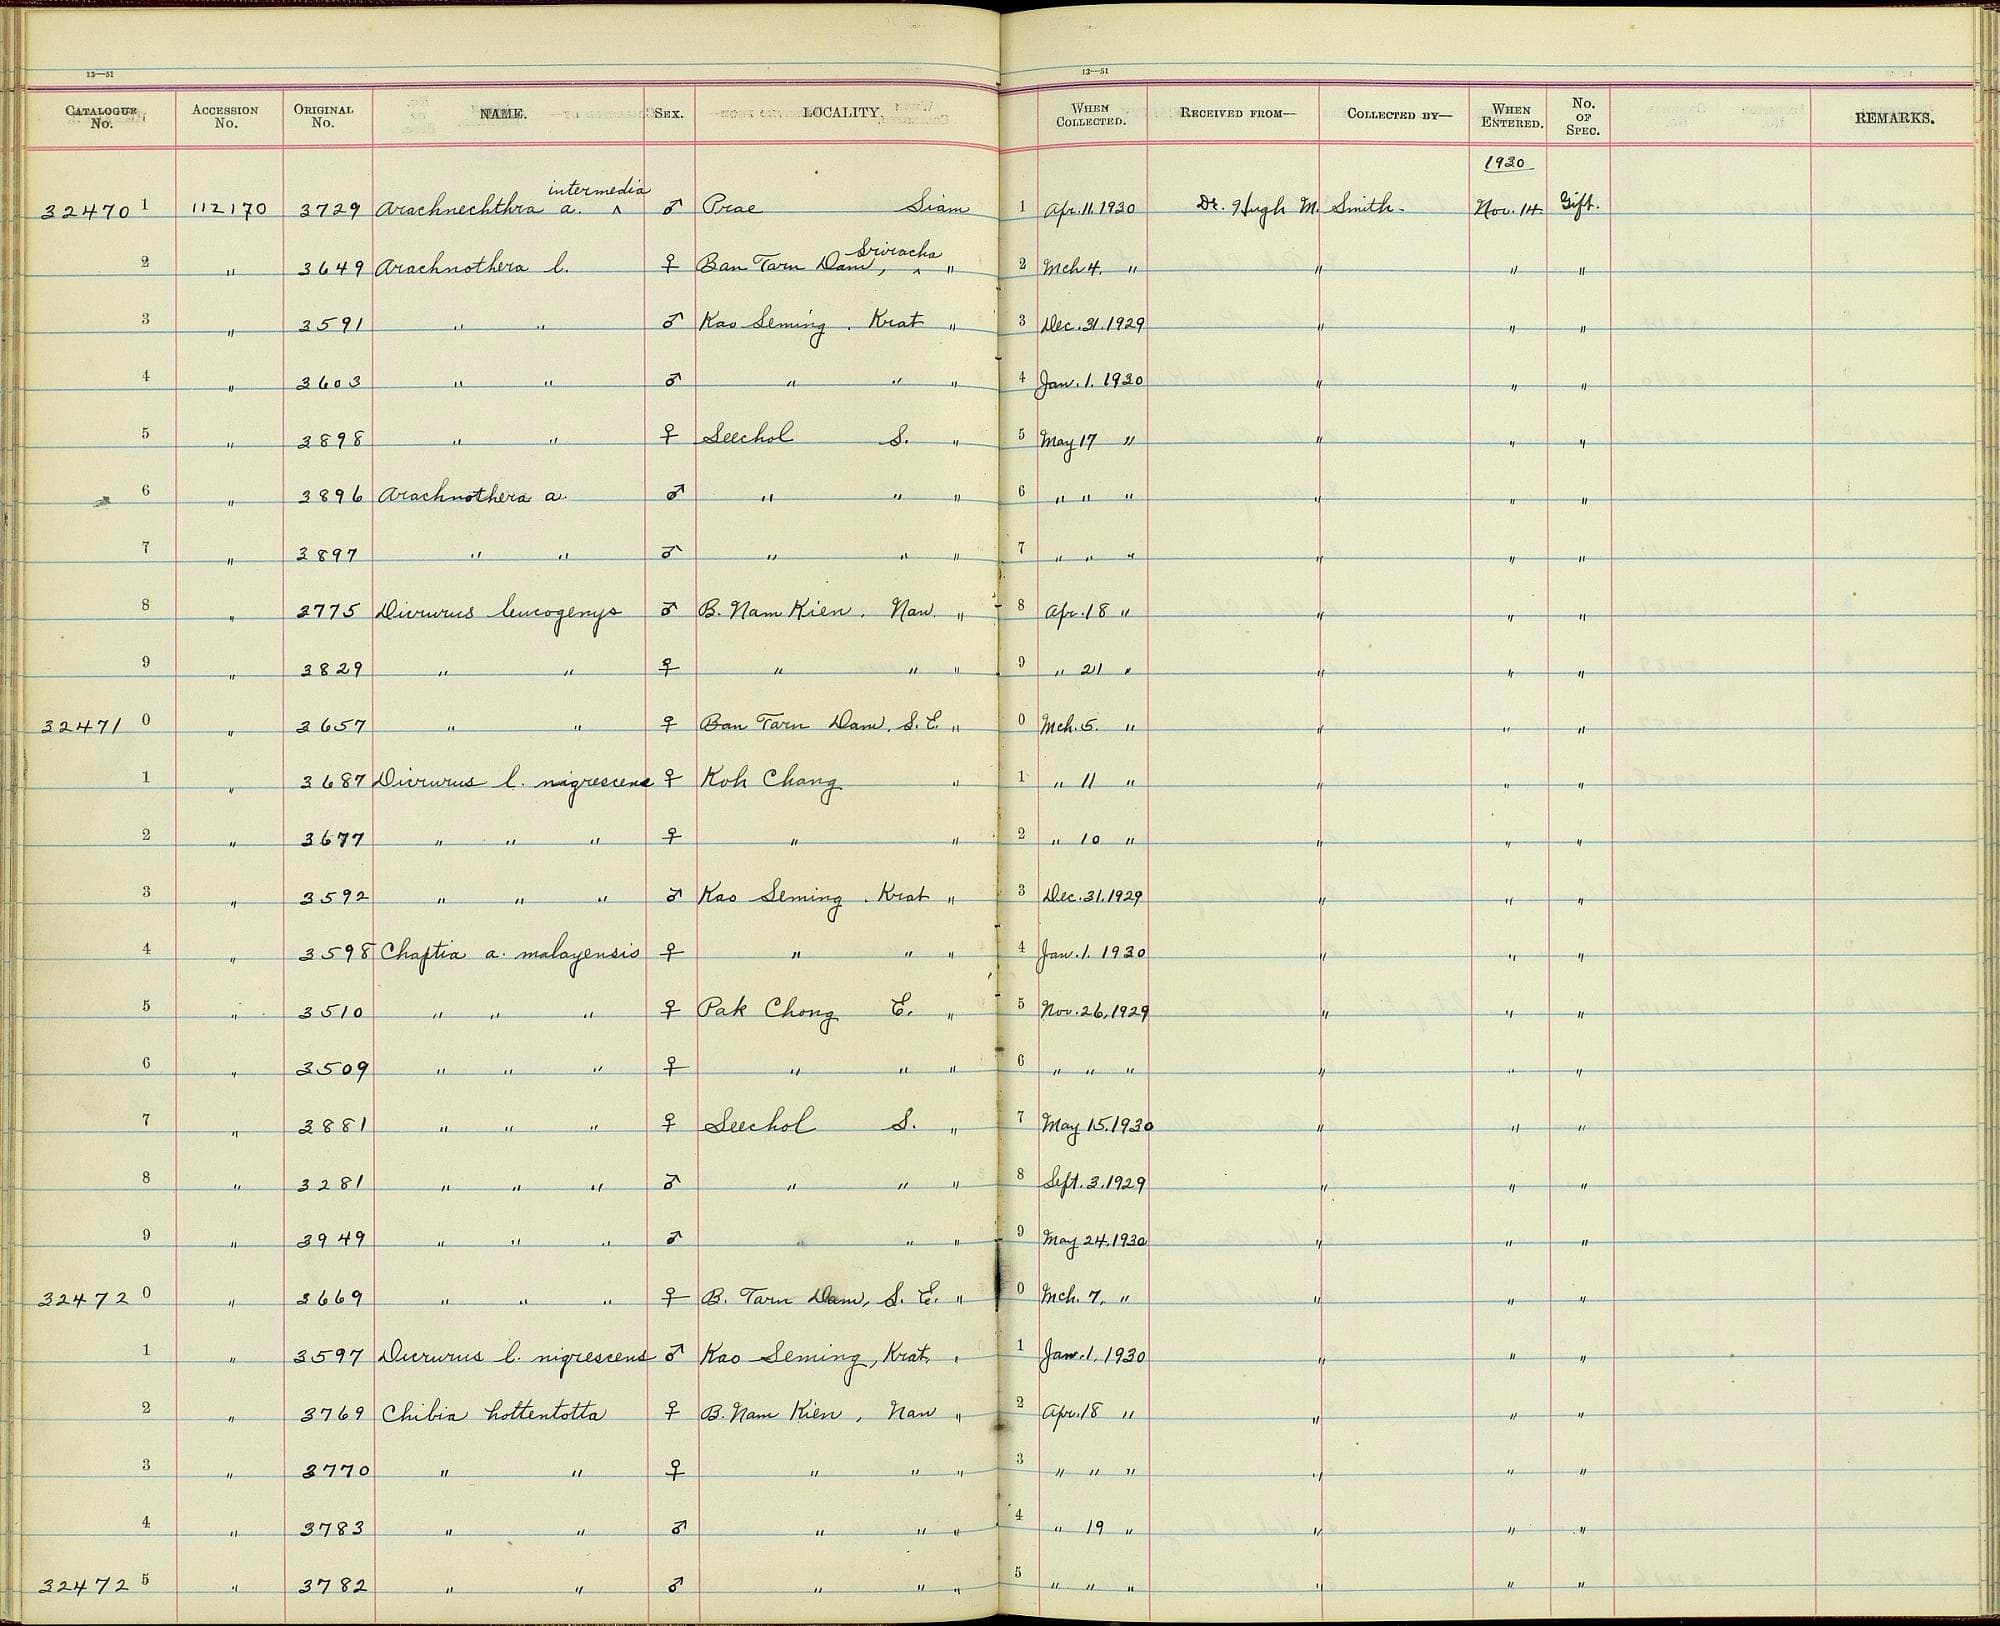 13—51 13—51
CATALOGUE No. ACCESSION No. ORIGINAL No. NAME. SEX. LOCALITY WHEN COLLECTED. RECEIVED FROM— COLLECTED BY— WHEN ENTERED. No. OF SPEC. REMARKS.
1930
32470 1 112170 3729 Arachnechthra a. ^ intermedia ♂ Prae Siam 1 Apr. 11. 1930 Dr. Hugh M. Smith. Nov. 14. Gift.
2 " 3649 Arachnothera l. ♀ Ban Tarn Dam, ^ Sriracha " 2 Mch 4. " " " "
3 " 3591 " " ♂ Kao Seming. Krat " 3 Dec. 31. 1929 " " "
4 " 3603 " " ♂ " " " 4 Jan. 1. 1930 " " "
5 " 3898 " " ♀ Seechol S. " 5 May 17 " " " "
6 " 3896 Arachnothera a. ♂ " " " 6 " " " " " "
7 " 3897 " " ♂ " " " 7 " " " " " "
8 " 3775 Dicrurus leucogenys ♂ B. Nam Kien. Nan. " 8 Apr. 18 " " " "
9 " 3829 " " ♀ " " " 9 " 21 " " " "
32471 0 " 3657 " " ♀ Ban Tarn Dam, S. E. " 0 Mch. 5. " " " "
1 " 3687 Dicrurus l. nigrescens ♀ Koh Chang " 1 " 11 " " " "
2 " 3677 " " " ♀ " " 2 " 10 " " " "
3 " 3592 " " " ♂ Kao Seming. Krat " 3 Dec. 31. 1929 " " "
4 " 3598 Chaptia a. malayensis ♀ " " " 4 Jan. 1. 1930 " " "
5 " 3510 " " " ♀ Pak Chong E. " 5 Nov. 26, 1929 " " "
6 " 3509 " " " ♀ " " " 6 " " " " " "
7 " 3881 " " " ♀ Seechol S. " 7 May 15. 1930 " " "
8 " 3281 " " " ♂ " " " 8 Sept. 3. 1929 " " "
9 " 3949 " " " ♂ " " " 9 May 24. 1930 " " "
32472 0 " 3669 " " " ♀ B. Tarn Dam, S. E. " 0 Mch. 7, " " " "
1 " 3597 Dicrurus l. nigrescens ♂ Kao Seming, Krat. " 1 Jan. 1. 1930 " " "
2 " 3769 Chibia hottentotta ♀ B. Nam Kien, Nan " 2 Apr. 18 " " " "
3 " 3770 " " ♀ " " " 3 " " " " " "
4 " 3783 " " ♂ " " " 4 " 19 " " " "
32472 5 " 3782 " " ♂ " " " 5 " " " " " "